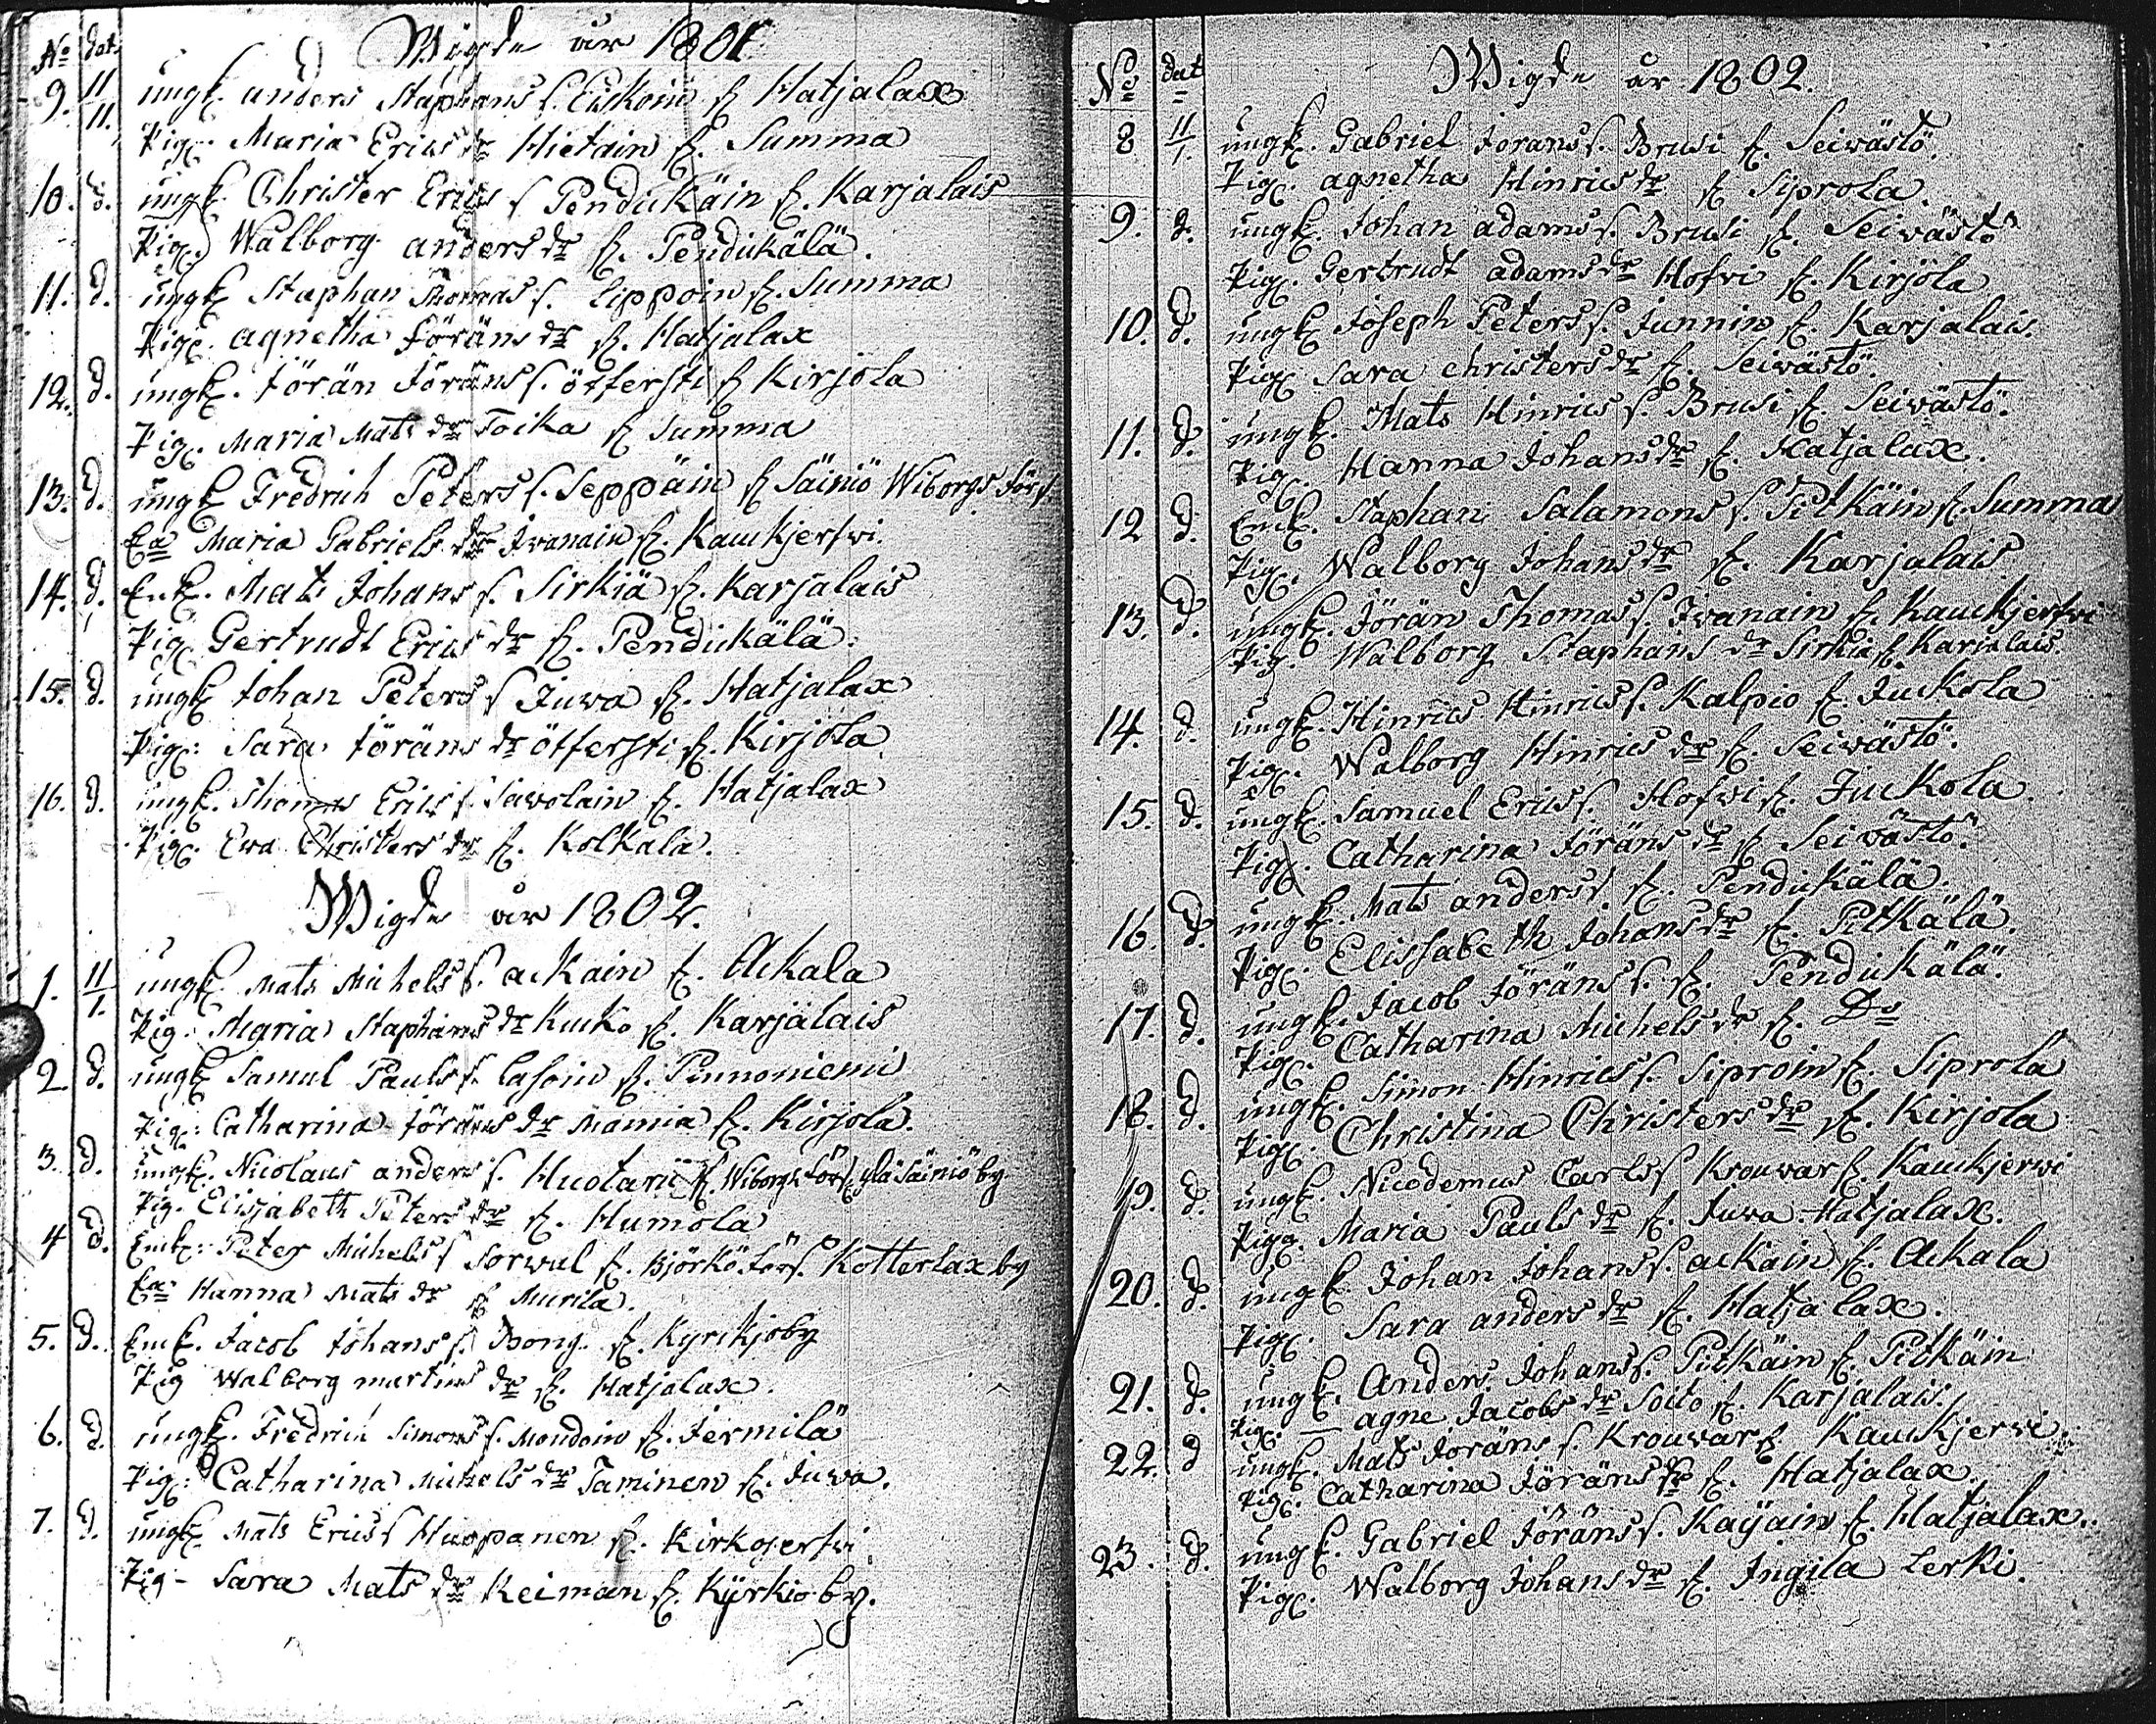 No dat. Wigde år 1801
9. 11/11. ungk anders Staphans s. Euskoin f. Hatjalax
Pig. Maria Erics dr Hietain f. Summa
10. d. ungk Christer Erics s Pendikäin f. Karjalais
Pig. Walborg anders dr f. Pendikälä.
11. d. ungk Staphan Thomas s. Lippoin f. Summa
Pig. agnetha Jöräns dr f. Hatjalax
12. d. ungk. Jörän Jöräns s. öttersti f Kirjola
Pig. Maria Mats dr Toika f Summa
13. d. ungk Fredrich Peters s. Seppäin f Säiniö Wiborgs förs.
Ea Maria Gabriels dr Iwanain f. Kauckjerfwi.
14. d. Enk. Mats Johans s. Sirkiä f. Karjalais
Pig Gertrudt Erics dr f. Pendikälä.
15. d. ungk Johan Peters s Juwa f. Hatjalax
Pig: Sara Jöräns dr öttersti f. Kirjola
16. d. ungk. Thomas Erics s. Sawolain f. Hatjalax
Pig. Ewa Christers dr f. Kolkala.
Wigde år 1802.
1. 11/1. ungk Mats Michels s. ackain f. Ackala
Pig. Maria Staphans dr Kucko f. Karjälais
2 d. ungk Samul Pauls s. Lasoin f. Pinnoniemi
Pig: Catharina Jöräns dr Mamia f. Kirjola.
3. d. ungk. Nicolaus anders s. Huotari f. Wiborgs förs. yläsäiniö by
Pig. Elisabeth Peters dr f. Humola
4 d. Enk. Peter Michels s Sorwal f. Björkö förs. Kotterlax by
Ea Hanna Mats dr f Murila.
5. d. Enk. Jacob Johans s. Bong f. Kyrckjoby
Pig Walborg martins dr f. Hatjalax.
6. d. ungk. Fredrich Simons s. Mondoin f. Jermilä
Pig: Catharina Michels dr Taminen f. Juwa.
7. d. ungk Mats Erics s Huppanen f. Kirkojerfwi
Pig - Sara Mats dr Reiman f. Kyrkioby.
No dat Wigde år 1802.
8 11/1. ungk. Gabriel Jorans s. Brusi f. Seiwästö.
Pig. agnetha Hinrics dr f Siprola.
9. d. ungk. Johan adams s. Brusi f. Seiwästö
Pig. Gertrudt adams dr Hofwi f. Kirjöla
10. d. ungk Joseph Peters s. Junnin f. Karjalais.
Pig. Sara christers dr f. Seiwästö.
11. d. ungk. Mats Hinrics s. Brusi f. Seiwästö.
Pig. Hanna Johans dr f. Hatjalax.
12 d. Enk. Staphan Salamons s. Pitkäin f. Summa
Pig. Walborg Johans dr f. Karjalais
13. d. ungk. Jörän Thomas s. Iwanain f. Kauckjerfwi
Pig. Walborg Staphans dr Sirkiä f. Karjalais.
14. d. ungk. Hinrics Hinrics s. Kalpio f. Juckola
Pig. Walborg Hinrics dr f. Seiwästö.
15. d. ungk. Samuel Erics s. Hofwi f. Juckola
Pig. Catharina Jöräns dr f Seiwästö.
16. d. ungk. Mats anders s. f. Pendikälä.
Pig. Elissabeth Johans dr f. Pitkälä.
17. d. ungk. Jacob Jöräns s. f. Pendikälä.
Pig. Catharina Michels dr f. Do
18. d. ungk. Simon Hinrics s. Siproin f. Siprola
Pig. Christina Christers dr f. Kirjola
19. d. ungk. Nicodemus Carls s Krouwar f. Kauckjerwi
Pig. Maria Pauls dr f. Juwa. Hatjalax.
20. d. ungk. Johan Johans s. ackain f. Ackala
Pig. Sara anders dr f. Hatjalax.
21. d. ungk. Anders Johans s. Pitkäin f. Pitkäin
Pig. — agne Jacobs dr Soito f. Karjalais.
22. d ungk. Mats Joräns s. Krouwar f. Kauckjerwi.
Pig. Catharina Jöräns dr f. Hatjalax.
23. d. ungk. Gabriel Jöräns s. Kaijain f. Hatjalax.
Pig. Walborg Johans dr f. Ingila Lerki.